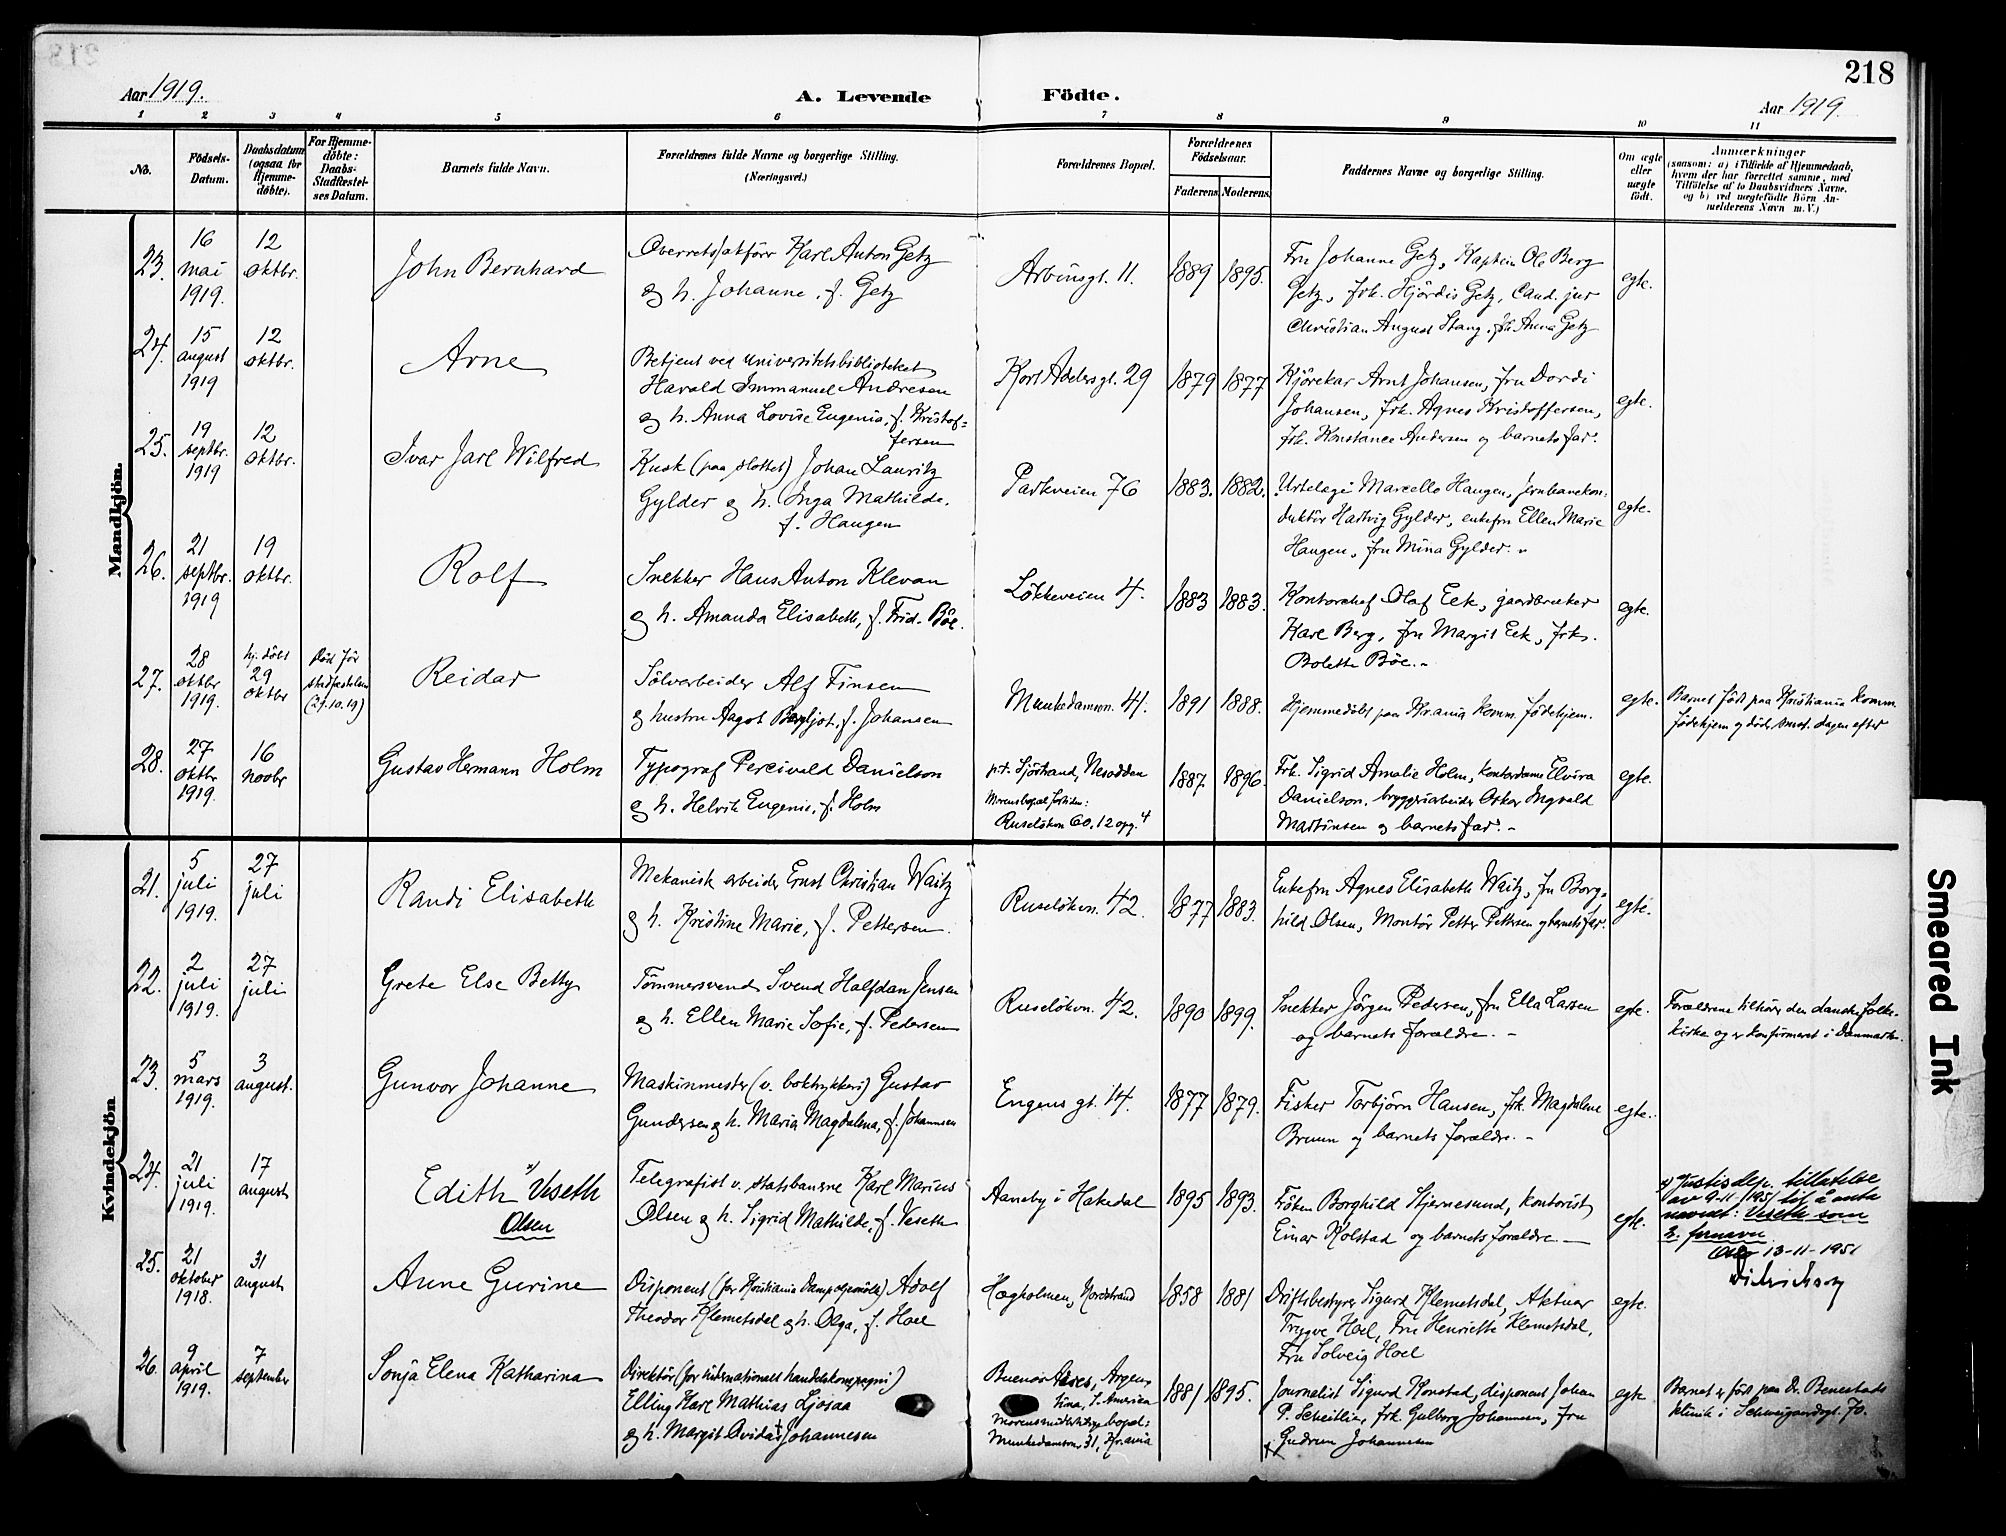 218
Aar 1919.
A. Levende Födte.
Aar 1919.
1 2 3 4 5 6 7 8 9 10 11
No.
Födsels-Datum.
Daabsdatum (ogsaa for Hjemme-döbte).
For Hjemme-döbte: Daabs-Stadfæstel-ses Datum.
Barnets fulde Navn.
Forældrenes fulde Navne og borgerlige Stilling.
(Næringsvei.)
Forældrenes Bopæl.
Forældrenes Födselsaar.
Faderens. Moderens.
Faddernes Navne og borgerlige Stilling.
Om ægte eller uægte födt.
Anmærkninger
(saasom: a) i Tilfælde af Hjemmedaab,
hvem der har forrettet samme, med
Tilföielse af to Daabsvidners Navne,
og b) ved uægtefödte Börn An-
melderens Navn m. V.)
Mandkjön.
23. 16 mai 1919. 12 oktbr. John Bernhard
Overretssakfører Karl Anton Getz
og h. Johanne, f. Getz
Arbinsgt. 11. 1889 1895.
Fru Johanne Getz, Kaptein Ole Berg
Getz, frk. Hjördis Getz, Cand. jur
Christian August Stang, frk. Anna Getz
egte.
24. 15 august 1919 12 oktbr. Arne
Betjent ved universitetsbiblioteket
Harald Immanuel Andresen
og h. Anna Lovise Eugenia, f. Kristof=
fersen
Kort Adelersgt. 29 1879 1877
Kjörekar Arnt Johansen, fru Dordi
Johansen, frk. Agnes Kristoffersen,
frk. Konstance Andersen og barnets far.
egte.
25. 19 septbr. 1919 12 oktbr. Ivar Jarl Wilfred
Kusk (paa slottet) Johan Lauritz
Gylder og h. Inga Mathilde,
f. Haugen
Parkveien 76 1883. 1882.
Urtelagi Marcello Haugen, jernbanekon:
duktör Hartvig Gylder, enkefru Ellen Marie
Haugen, fru Mina Gylder.
egte.
26. 21 septbr. 1919 19 oktbr. Rolf
Snekker Hans Anton Klevan
og h. Amanda Elisabeth, f. Frid. Böe.
Løkkeveien 4. 1883 1883.
Kontorchef Olaf Eek, gaardbruker
Kare Berg, fru Margit Eek, frk.
Bolette Böe. -
egte.
27. 28 oktbr 1919. hj. döbt 29 oktbr
Död før stadfæstelsen (29.10.19)
Reidar
Sölvarbeider Alf Finsen
og hustru Aagot Bergljot, f. Johansen
Munkedamsvn. 41. 1891 1888.
Hjemmedöbt paa Kr.ania komm. fødehjem.
egte.
Barnet født paa Kristiania komm.
födehjem og døde smst. dagen efter
28. 27 oktbr 1919. 16 novbr Gustav Hermann Holm
Typograf Percivald Danielson
og h. Helvik Eugenie, f. Holm
p.t. Sjöstrand, Nesodden
Morens bopæl fortiden:
Ruselökvn 60, 12 opg. 4
1887. 1896.
Frk. Sigrid Amalie Holm, kontordame Elvira
Danielson, bryggeriarbeider Oskar Ingvald
Martinsen og barnets far. -
egte.
Kvindekjön
21. 5 juli 1919. 27 juli Randi Elisabeth
Mekanisk arbeider Ernst Christian Waitz
og h. Kristine Marie, f. Pettersen.
Ruselökvn. 42. 1877 1883.
Enkefru Agnes Elisabeth Waitz, fru Borg-
hild Olsen, Montör Petter Pettersen og barnets far.
egte.
22. 2 juli 1919. 27 juli Grete Else Betty
Tömmersvend Svend Halfdan Jensen
og h. Ellen Marie Sofie, f. Pedersen
Ruselökvn. 42. 1890 1899.
Snekker Jörgen Pedersen, fru Ella Larsen
og barnets forældre. -
egte.
Forældrene tilhører den danske folke-
kirke og er konfirmeret i Danmark.
23. 5 mars 1919. 3 august. Gunvor Johanne
Maskinmester (v. boktrykkeri) Gustav
Gundersen og h. Maria Magdalena, f. Johannsen
Engens gt. 14. 1877 1879.
Fisker Torbjörn Hansen, frk. Magdalene
Bruun og barnets forældre. -
egte.
24. 21 juli 1919. 17 august Edith x) Veseth
Olsen
Telegrafist v. statsbanene Karl Marius
Olsen og h. Sigrid Mathilde, f. Veseth
Aaneby i Hakedal 1895 1893.
Fröken Borghild Stjernesund, kontorist
Einar Kolstad og barnets forældre.
egte.
x) Justisdep. tillatelse
av 9-11-1951 til å anta
navnet: Veseth som
2. fornavn.
Oslo 13-11-1951
25. 21 oktober 1918. 31 august Anne Gurine
Disponent (for Kristiania Dampoljemölle) Adolf
Theodor Klemetsdel og h. Olga, f. Hoel
Hægholmen, Nordstrand 1858 1881
Driftsbestyrer Sigurd Klemetsdal, Aktuar
Trygve Hoel, Fru Henriette Klemetsdal,
Fru Solveig Hoel
egte.
26. 9 april 1919. 7 september Sonja Elena Katharina
Direktör (for internationalt handelskompagni)
Elling Karl Mathias Ljosaa
og h. Margit Ovida, f. Johannesen
Buenos Aires, Argen-
tina, S. Amerika
Morens midlertidige bopæl:
Munkedamsvn 31, Kr.ania
1881 1895.
Journalist Sigurd Honstad, disponent Johan
P. Scheitlie, frk. Gulborg Johannesen, fru
Gudrun Johannesen
egte.
Barnet er født paa Dr. Benestads
klinik i Schweigaardsgt. 70.
Smeared Ink